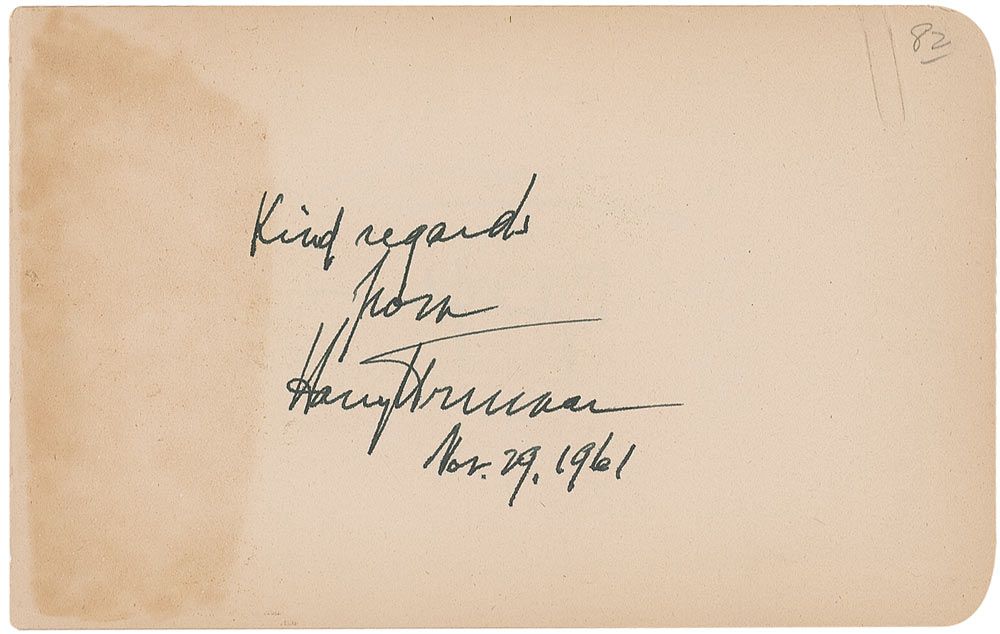 82
Kind regards
from
Harry Truman
Nov. 29, 1961